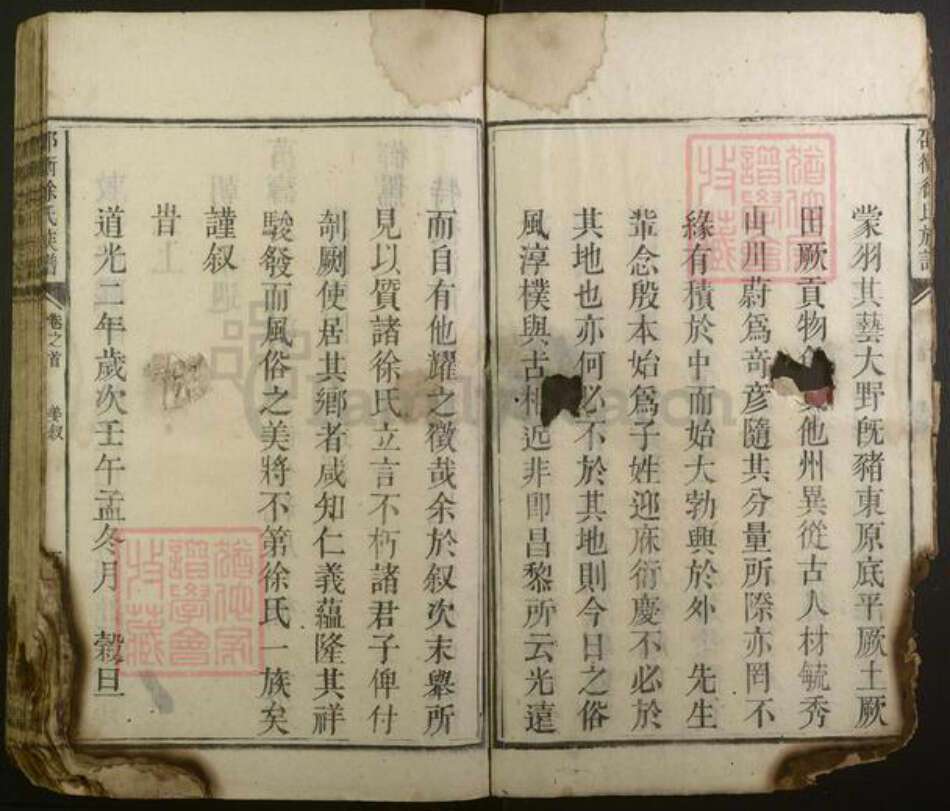 蒙羽其藝大野旣豬東原底平厥土厥
田厥貢物他州異從古人材毓秀
山川蔚爲奇彦隨其分量所際亦罔不
緣有積於中而始大勃興於外　先生
輩念殷本始爲子姓迎庥衍慶不必於
其地也亦何必不於其地則今日之俗
風淳樸與古相近非卽昌黎所云光遠
而自有他耀之徵哉余於叙次末舉所
見以質諸徐氏立言不朽諸君子俾付
剞劂使居其鄉者咸知仁義蘊隆其祥
駿發而風俗之美將不第徐氏一族矣
謹叙
旹
道光二年歲次壬午孟冬月　穀旦
邵衡徐氏族譜
卷之首
姜叙
邵衡徐氏族譜
譜學會
收藏
譜學會
收藏